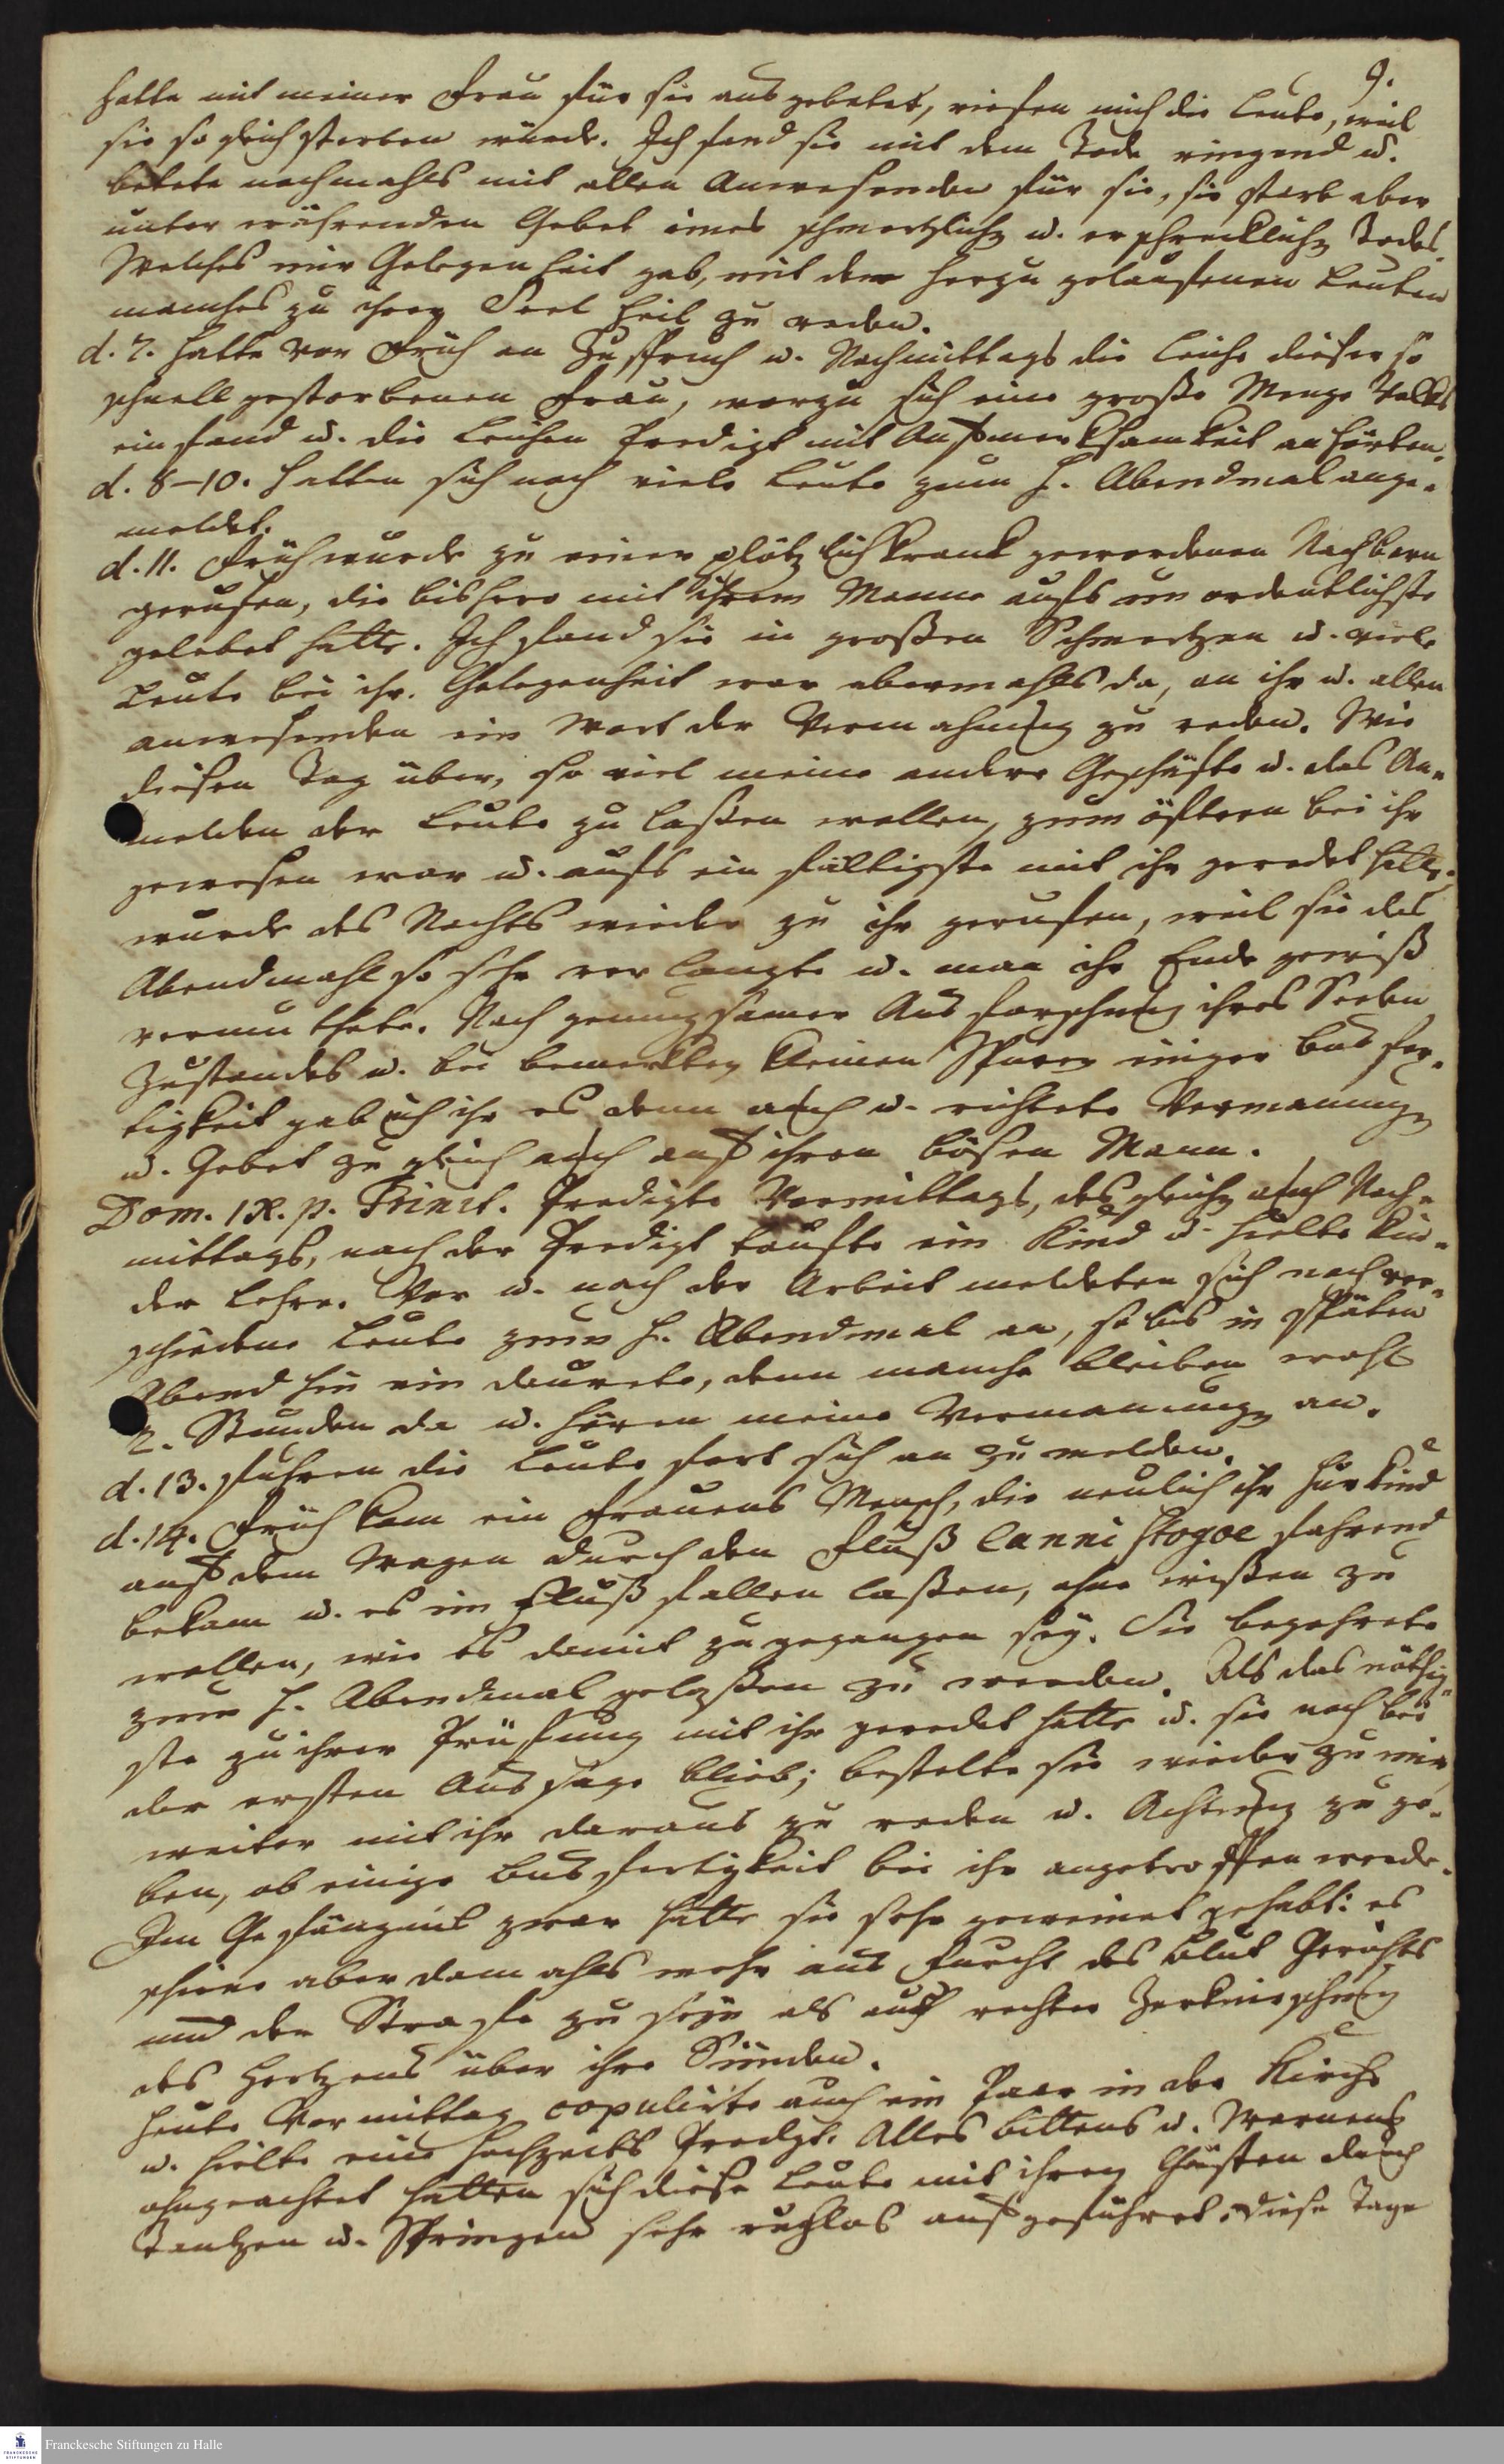 9.
hatte mit meiner Frau für sie aus gebetet, riefen mich die Leute, weil
sie so gleich sterben würde. Ich fand sie mit dem Tode ringend u.
betete nochmahls mit allen Anwesenden für sie, sie starb aber
unter währenden Gebet eines schmertzlichen u. erschrecklichen Todes.
Welches mir Gelegenheit gab, mit den herzu gelaufenen Leuten
manches zu ihrem Seel Heil zu reden.
d. 7. hatte von Früh an Zuspruch u. Nachmittags die Leiche dieser so
schnell gestorbenen Frau, worzu sich eine große Menge Volks
ein fand u. die Leichen Predigt mit Aufmerksamkeit anhörten.
d. 8-10. hatten sich noch viele Leute zum H. Abendmal ange-
meldet.
d. 11. Früh wurde zu einer plötzlich krank gewordenen Nachbarn
gerufen, die bishero mit ihrem Manne aufs unordentlichste
gelebet hatte. Ich fand sie in großen Schmertzen u. viele
Leute bei ihr. Gelegenheit war abermahls da, an ihr u. allen
anwesenden ein Wort der Vermahnung zu reden. Wie
diesen Tag über, so viel meine andere Geschäfte u. das An-
melden der Leute zu laßen wollen, zum öftern bei ihr
gewesen war u. aufs einfältigste mit ihr geredet hatte,
wurde des Nachts wieder zu ihr gerufen, weil sie das
Abendmahl so sehr verlangte u. man ihr Ende gewiß
vermuthete. Nach genungsamer Ausforschung ihres Seelen
Zustandes u. bei bemerkten kleinen Spuren einiger Busfer-
tigkeit gab ich ihr es denn auch u. richtete Vermanungen
u. Gebet zu gleich auch auf ihren bösen Mann.
Dom. IX. p. Trinit. Predigte Vormittags, desgleichen auch Nach-
mittags, nach der Predigt taufte ein Kind u. hielte Kin-
der Lehre. Vor u. nach der Arbeit meldeten sich noch ver-
schiedene Leute zum H. Abendmal an, so bis in späten
Abend hin ein daurete, denn manche bleiben wohl
2. Stunden da u. hören meine Vermanungen an.
d. 13. fuhren die Leute fort sich an zu melden.
d. 14. Früh kam ein Frauens Mensch, die neulich ihr Hurkind
auf dem Wagen durch den Fluß Cannistogoe fahrend
bekam u. es im Fluß fallen laßen, ohne wißen zu
wollen, wie es damit zu gegangen sey. Sie begehrete
zum H. Abendmal gelaßen zu werden. Als das nöthig-
ste zu ihrer Prüfung mit ihr geredet hatte u. sie noch bei
der ersten Aussage blieb; bestelte sie wieder zu mir,
weiter mit ihr daraus zu reden u. Achtung zu ge-
ben, ob einige Busfertigkeit bei ihr angetroffen werde.
Im Gefängnis zwar hatte sie sehr geweinet gehabt: es
schiene aber damahls mehr aus Furcht des Blut Gerichts
und der Strafe zu seyn als aus rechter Zerknirschung
des Hertzens über ihre Sünden.
Heute Vormittag copulirte auch ein Paar in der Kirche
u. hielte eine Hochzeits Predgt. Alles bittens u. Warnens
ohngeachtet hatten sich diese Leute mit ihren Gästen durch
Tantzen u. Springen sehr ruchlos aufgeführet. Diese Tage
Franckesche Stiftungen zu Halle